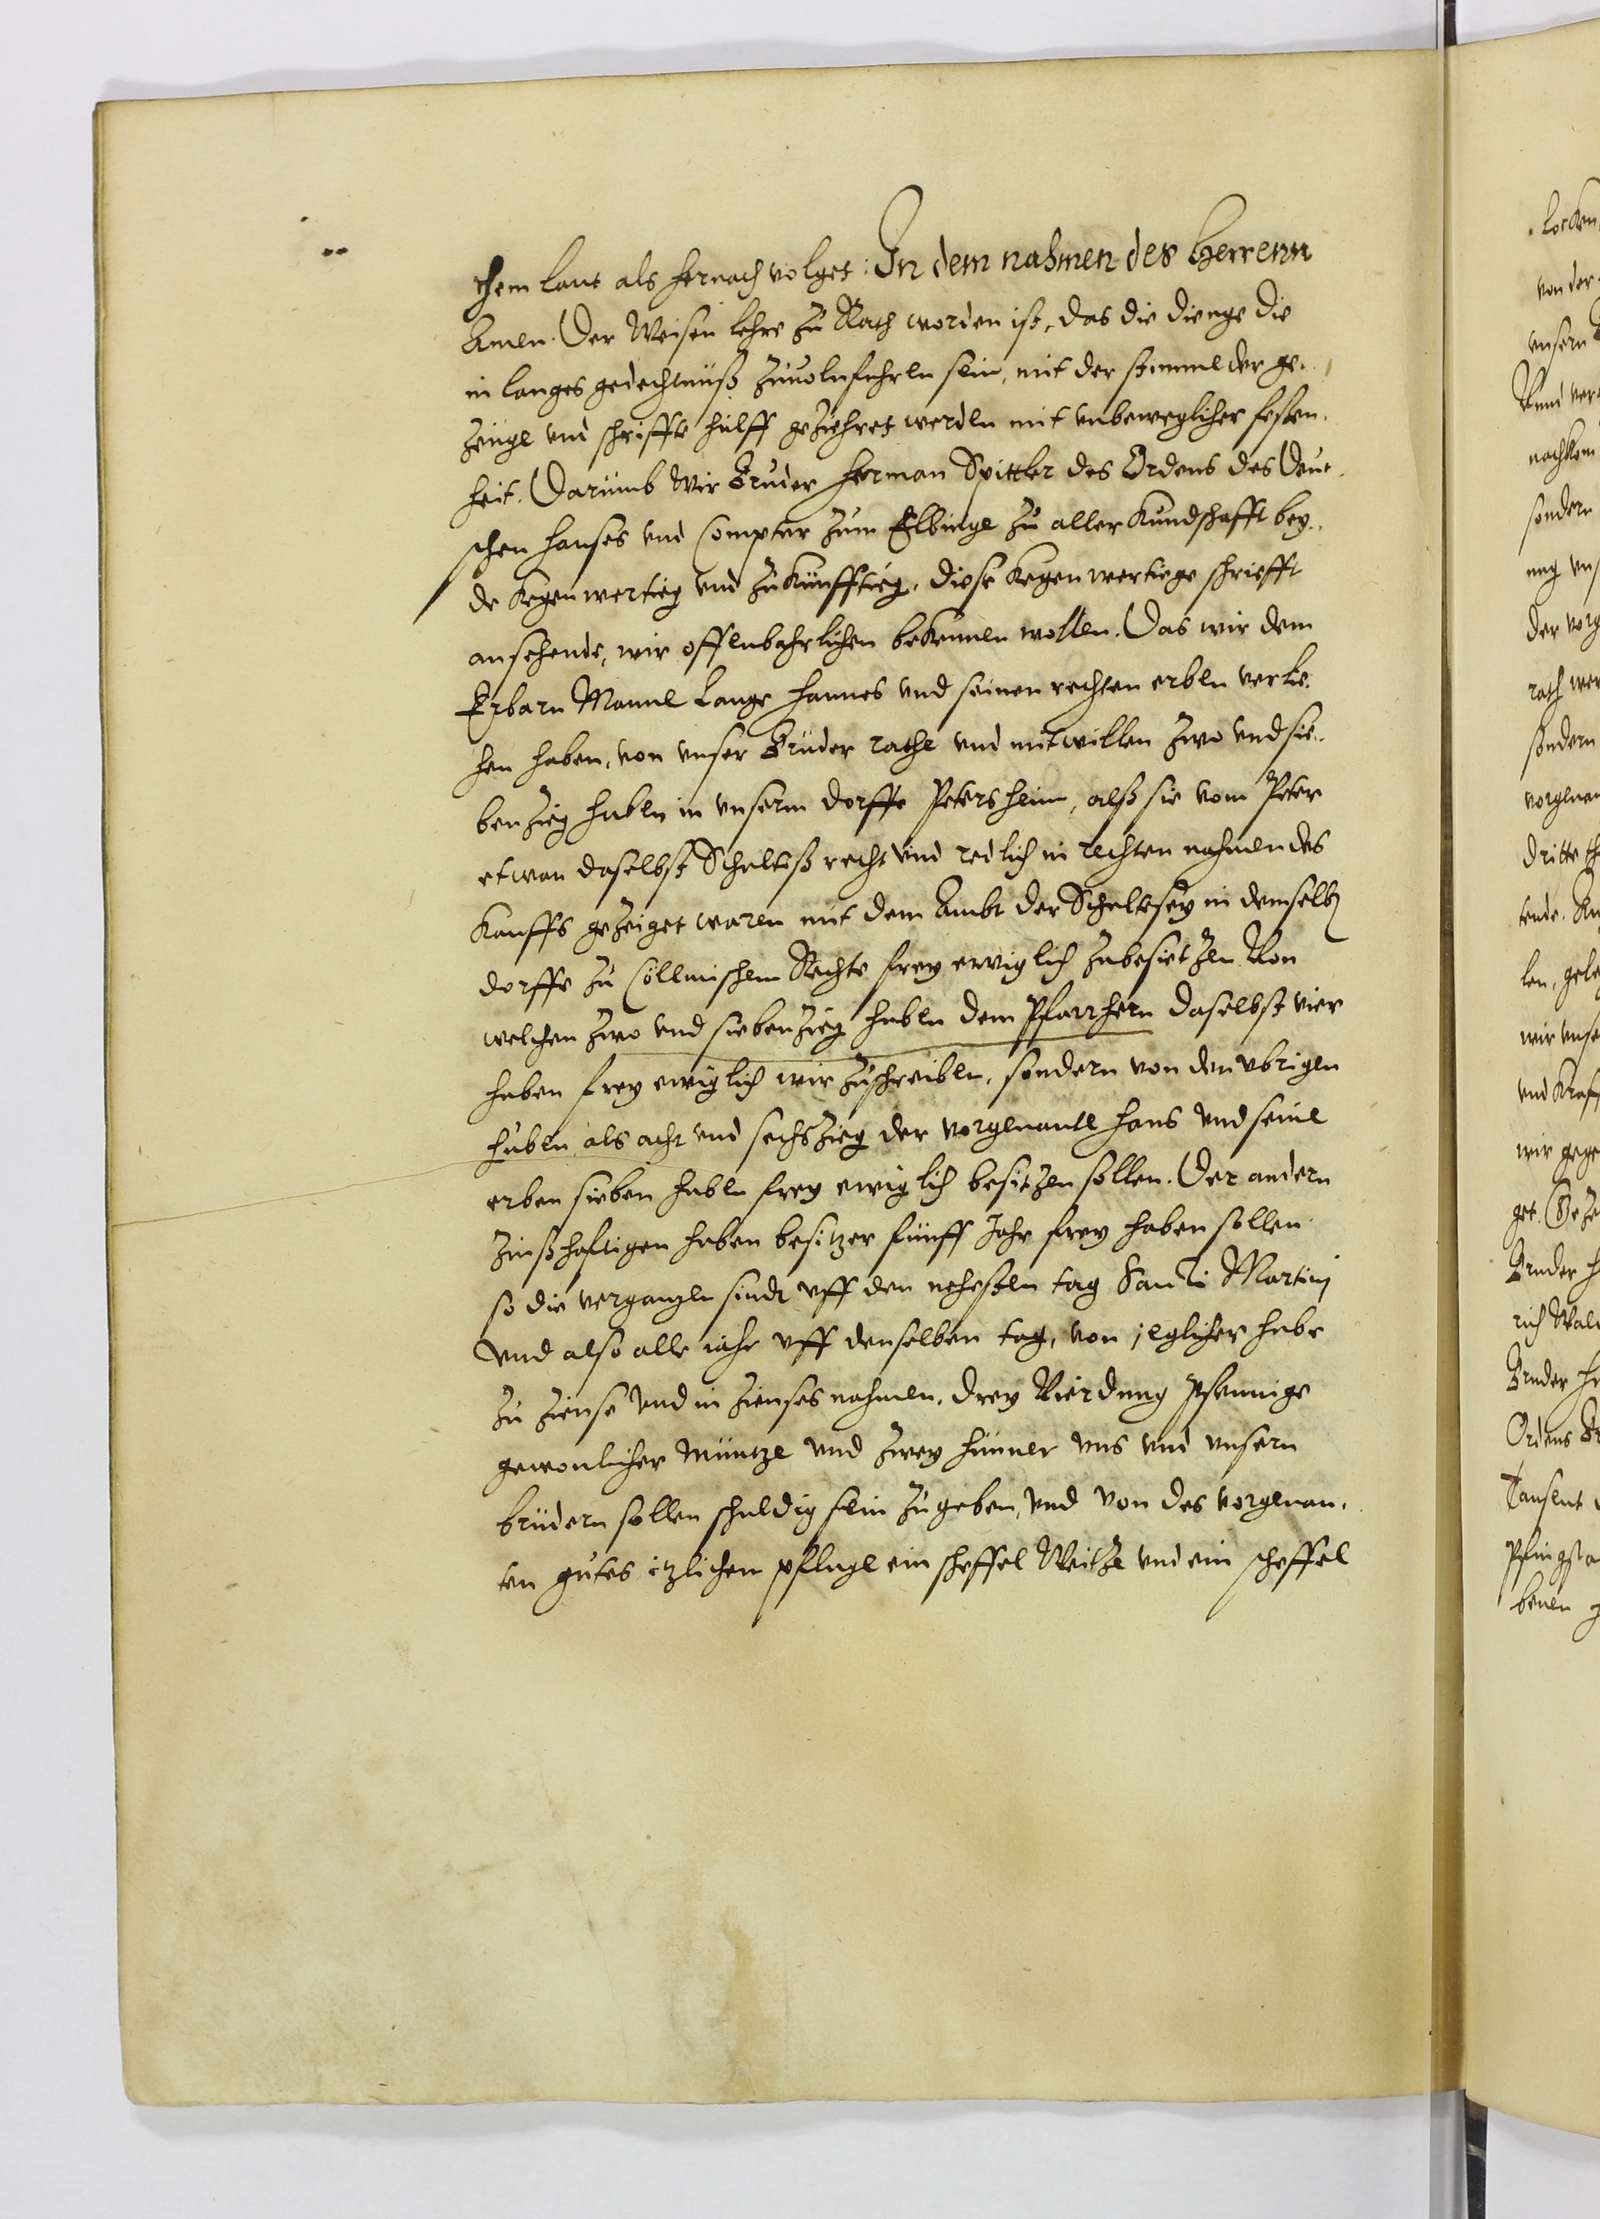 chem laut als hernach volget: In dem nahmen des Herrenn
Amen. Der Weisen lehre zu Rath worden ist, das die dienge die
in langes gedechtnuß zuuolnfuhren sein, mit der stimme der ge-
zeuge und schriffte hülff geziehret werden mit unbeweglicher festen-
heit. Darumb Wir Bruder Herman Spittler des Ordens des Deut-
schen hauses und Compter zum Elbinge zu aller Kundschafft bey-
de kegenwertig und zukünfftig, diese kegenwertiege schriefft
ansehende, wir offenbahrlichen bekennen wollen. Das wir dem
Erbarn Manne Lange Hannes und seinen rechten erben verlie-
hen haben, von unser Brüder rathe und mitwillen zwo und sie-
benzieg huben in unserm dorffe Petersheim, alß sie vom Peter
etwan daselbst Schulteß recht und redlich in rechten nahmen des
Kauffs gezeiget waren mit dem Ambt der Schultesey in demselben
dorffe zu Cöllmischem Rechte frey erwiglich zubesietzen Von
welchen zwo und siebenzieg huben dem Pfarrhern daselbst vier
huben frey ewiglich wir zuschreiben, sondern von den ubrigen
huben als acht und sechszieg der vorgenante Hans und seine
erben sieben huben frey ewiglich besitzen sollen. Der andern
zinßhaftigen huben besitzer fünff Jahr frey haben sollen
so die vergangen sindt uff den nehesten tag Sancti Martinj
und also alle iahr uff denselben tag, von jeglicher hube
zu zinse und in zienses nahmen, drey Vierdung Pfennige
gewonlicher müntze und zwey hünner uns und unsern
brüdern sollen schuldig sein zugeben, und von des vorgenan-
ten gutes itzlichen pfluge ein scheffel Weitze und ein scheffel